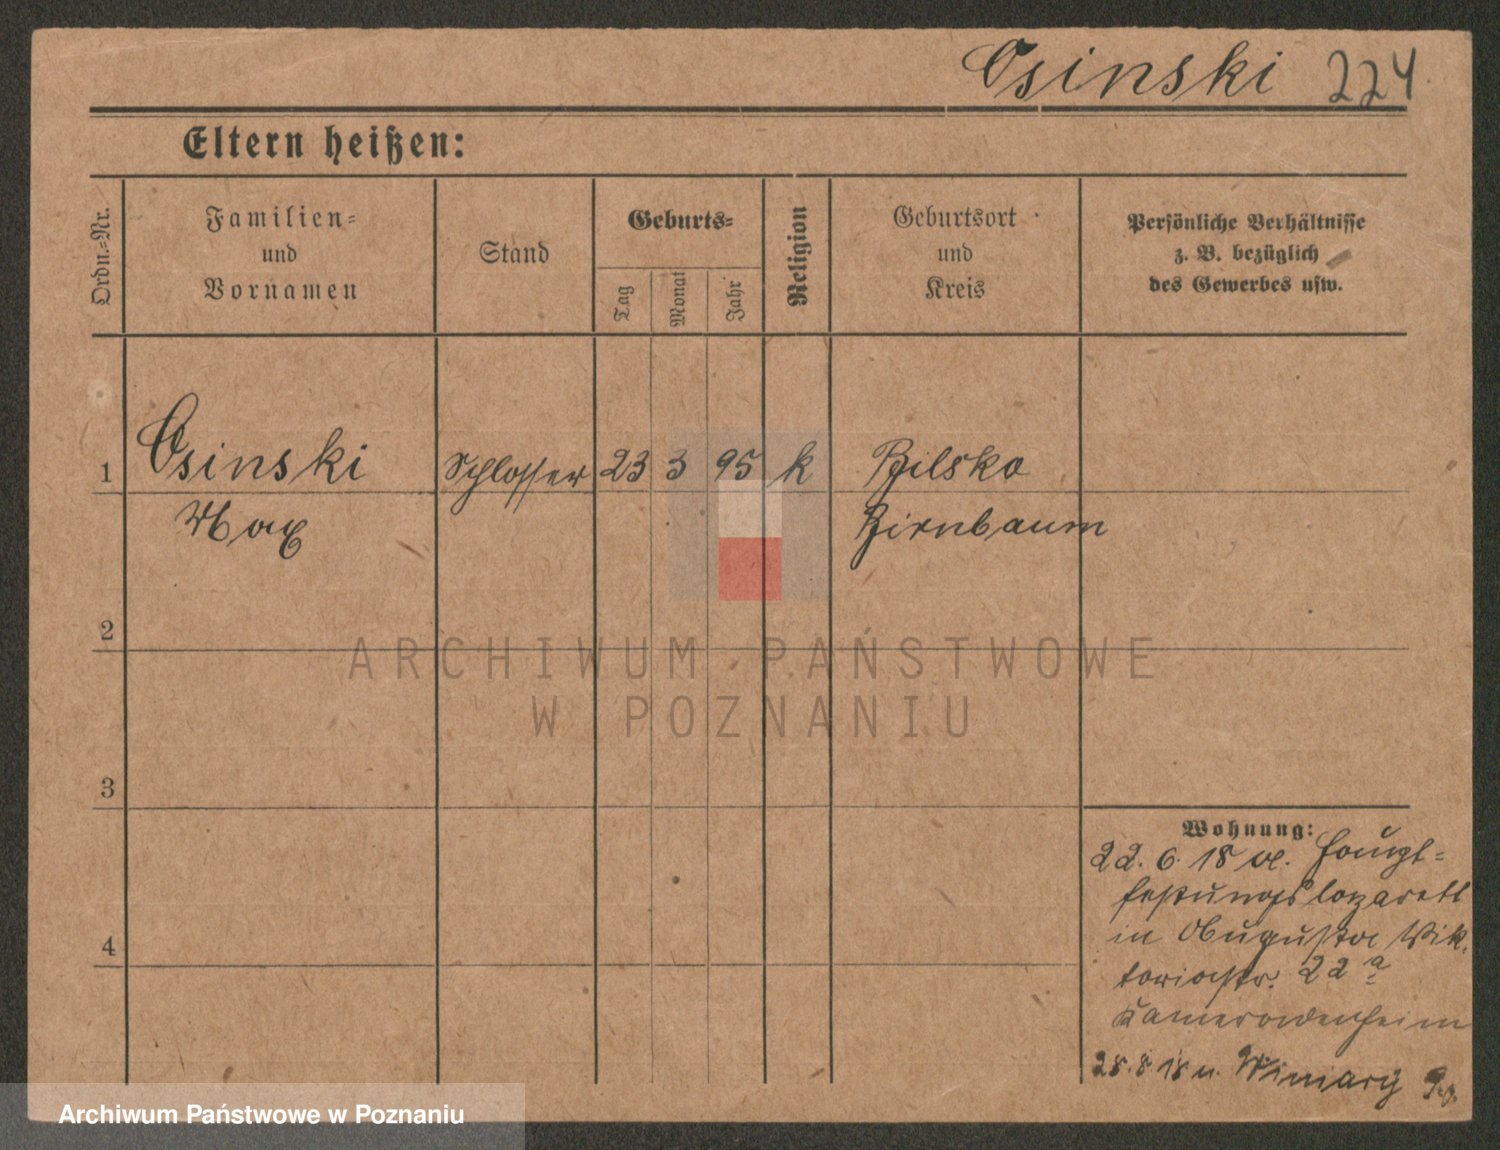 Osinski 224
Eltern heißen:
Ordn.=Nr.
Familien=
und
Vornamen
Stand
Geburts=
Tag
Monat
Jahr
Religion
Geburtsort
und
Kreis
Persönliche Verhältnisse
z. B. bezüglich
des Gewerbes usw.
1 Osinski Schlosser 23 3 95 k Bilsko
Max Birnbaum
2
ARCHIWUM PAŃSTWOWE
W POZNANIU
3
4
Wohnung:
22. 6. 18 a. Haupt=
festungslazarett
in Augusta Vik.
toriastr. 22 a
Kameradenheim
28. 8 18 n. Winiary
Archiwum Państwowe w Poznaniu